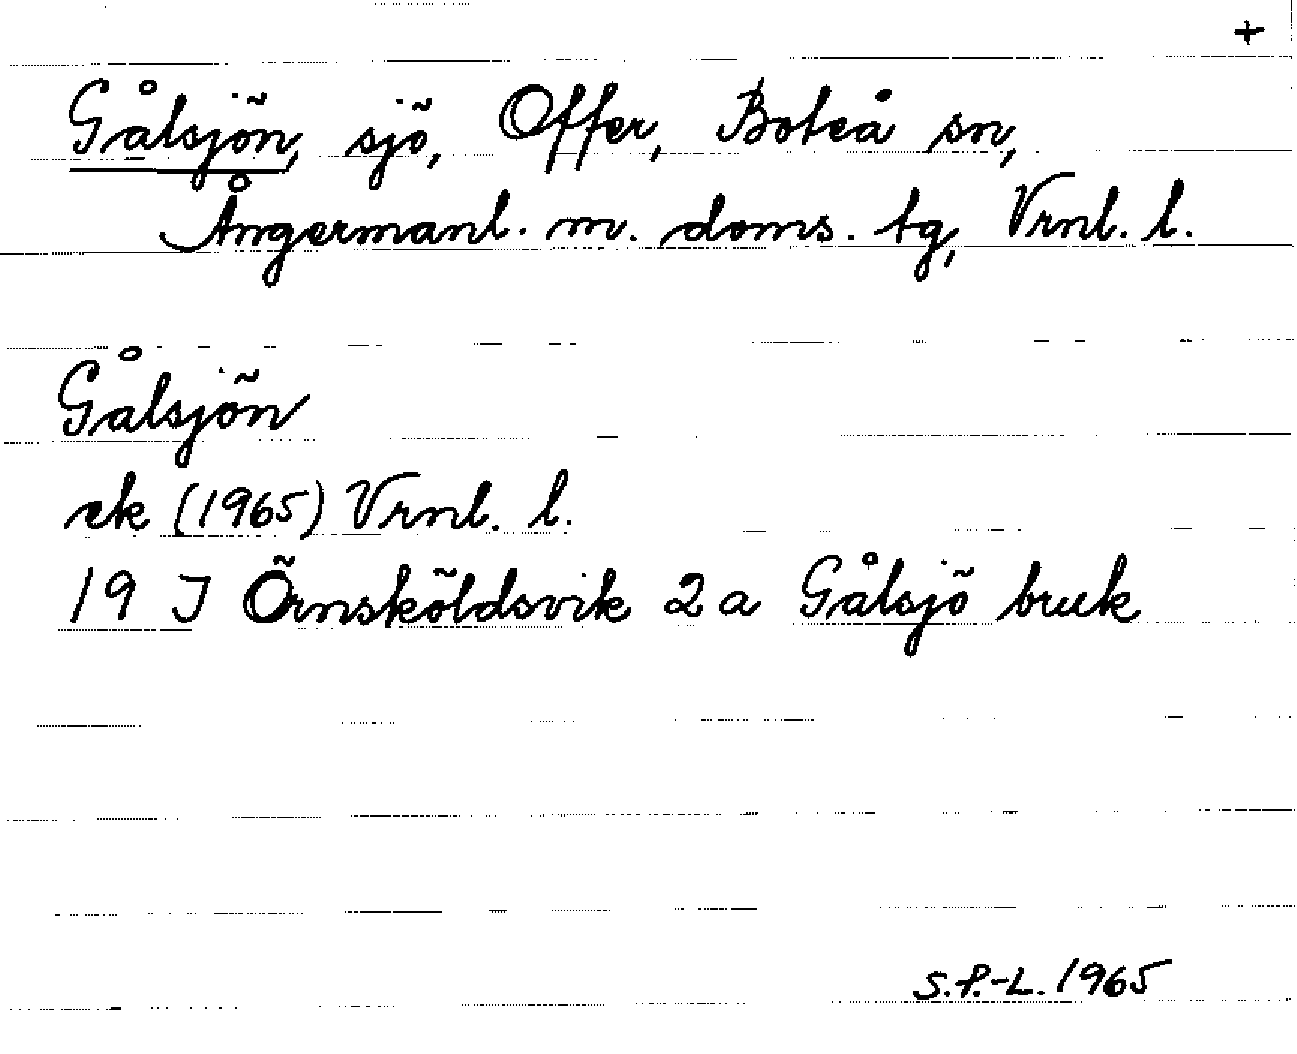 +
Gålsjön, sjö, Offer, Boteå sn,
Ångermanl. m. doms. tg, Vrnl. l.
Gålsjön
ek (1965) Vrnl. l.
19 J Örnsköldsvik 2 a Gålsjö bruk
S.P.-L. 1965